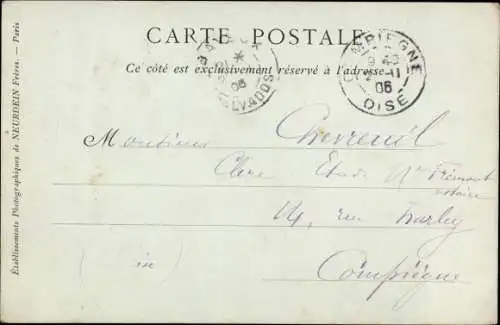 CARTE POSTALE
Ce côté est exclusivement réservé à l'adresse
COMPIEGNE
9 40
11
06
OISE
06
CALVADOS
Monsieur Chevreuil
Clerc Etude Me Frémont
notaire
14, rue Harley
Compiègne
Établissements Photographiques de NEURDEIN Frères. — Paris